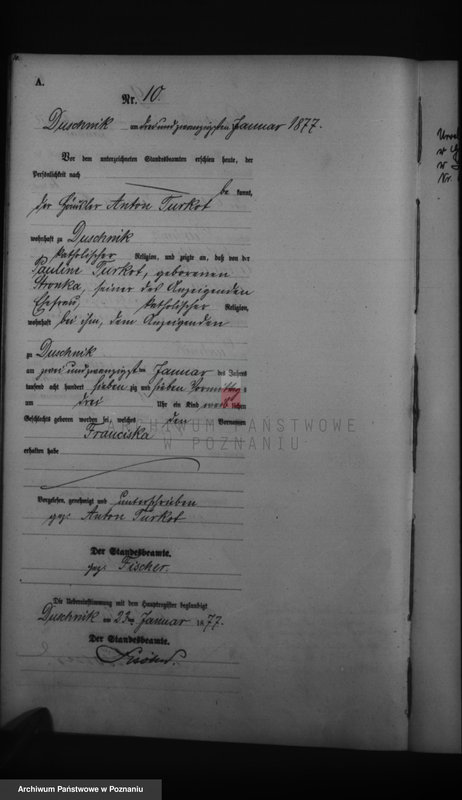 A.
Nr. 10.
Duschnik am drei und zwanzigsten Januar 1877.
Vor dem unterzeichneten Standesbeamten erschien heute, der
Persönlichkeit nach
be kannt,
der Häusler Anton Turkot
wohnhaft zu Duschnik
katholischer Religion, und zeigte an, daß von der
Pauline Turkot, geborenen
Stronka, seiner des Anzeigenden
Ehefrau, katholischer Religion,
wohnhaft bei ihm, dem Anzeigenden
zu Duschnik
am zwei und zwanzigsten Januar des Jahres
tausend acht hundert sieben zig und sieben Vormittag s
um drei Uhr ein Kind weib lichen
Geschlechts geboren worden sei, welches den Vornamen
Franciska
erhalten habe
Vorgelesen, genehmigt und unterschrieben
gez: Anton Turkot
Der Standesbeamte.
gez: Fischer.
Die Uebereinstimmung mit dem Hauptregister beglaubigt
Duschnik am 23ten Januar 1877.
Der Standesbeamte.
Fischer.
ARCHIWUM PAŃSTWOWE
W POZNANIU
Archiwum Państwowe w Poznaniu